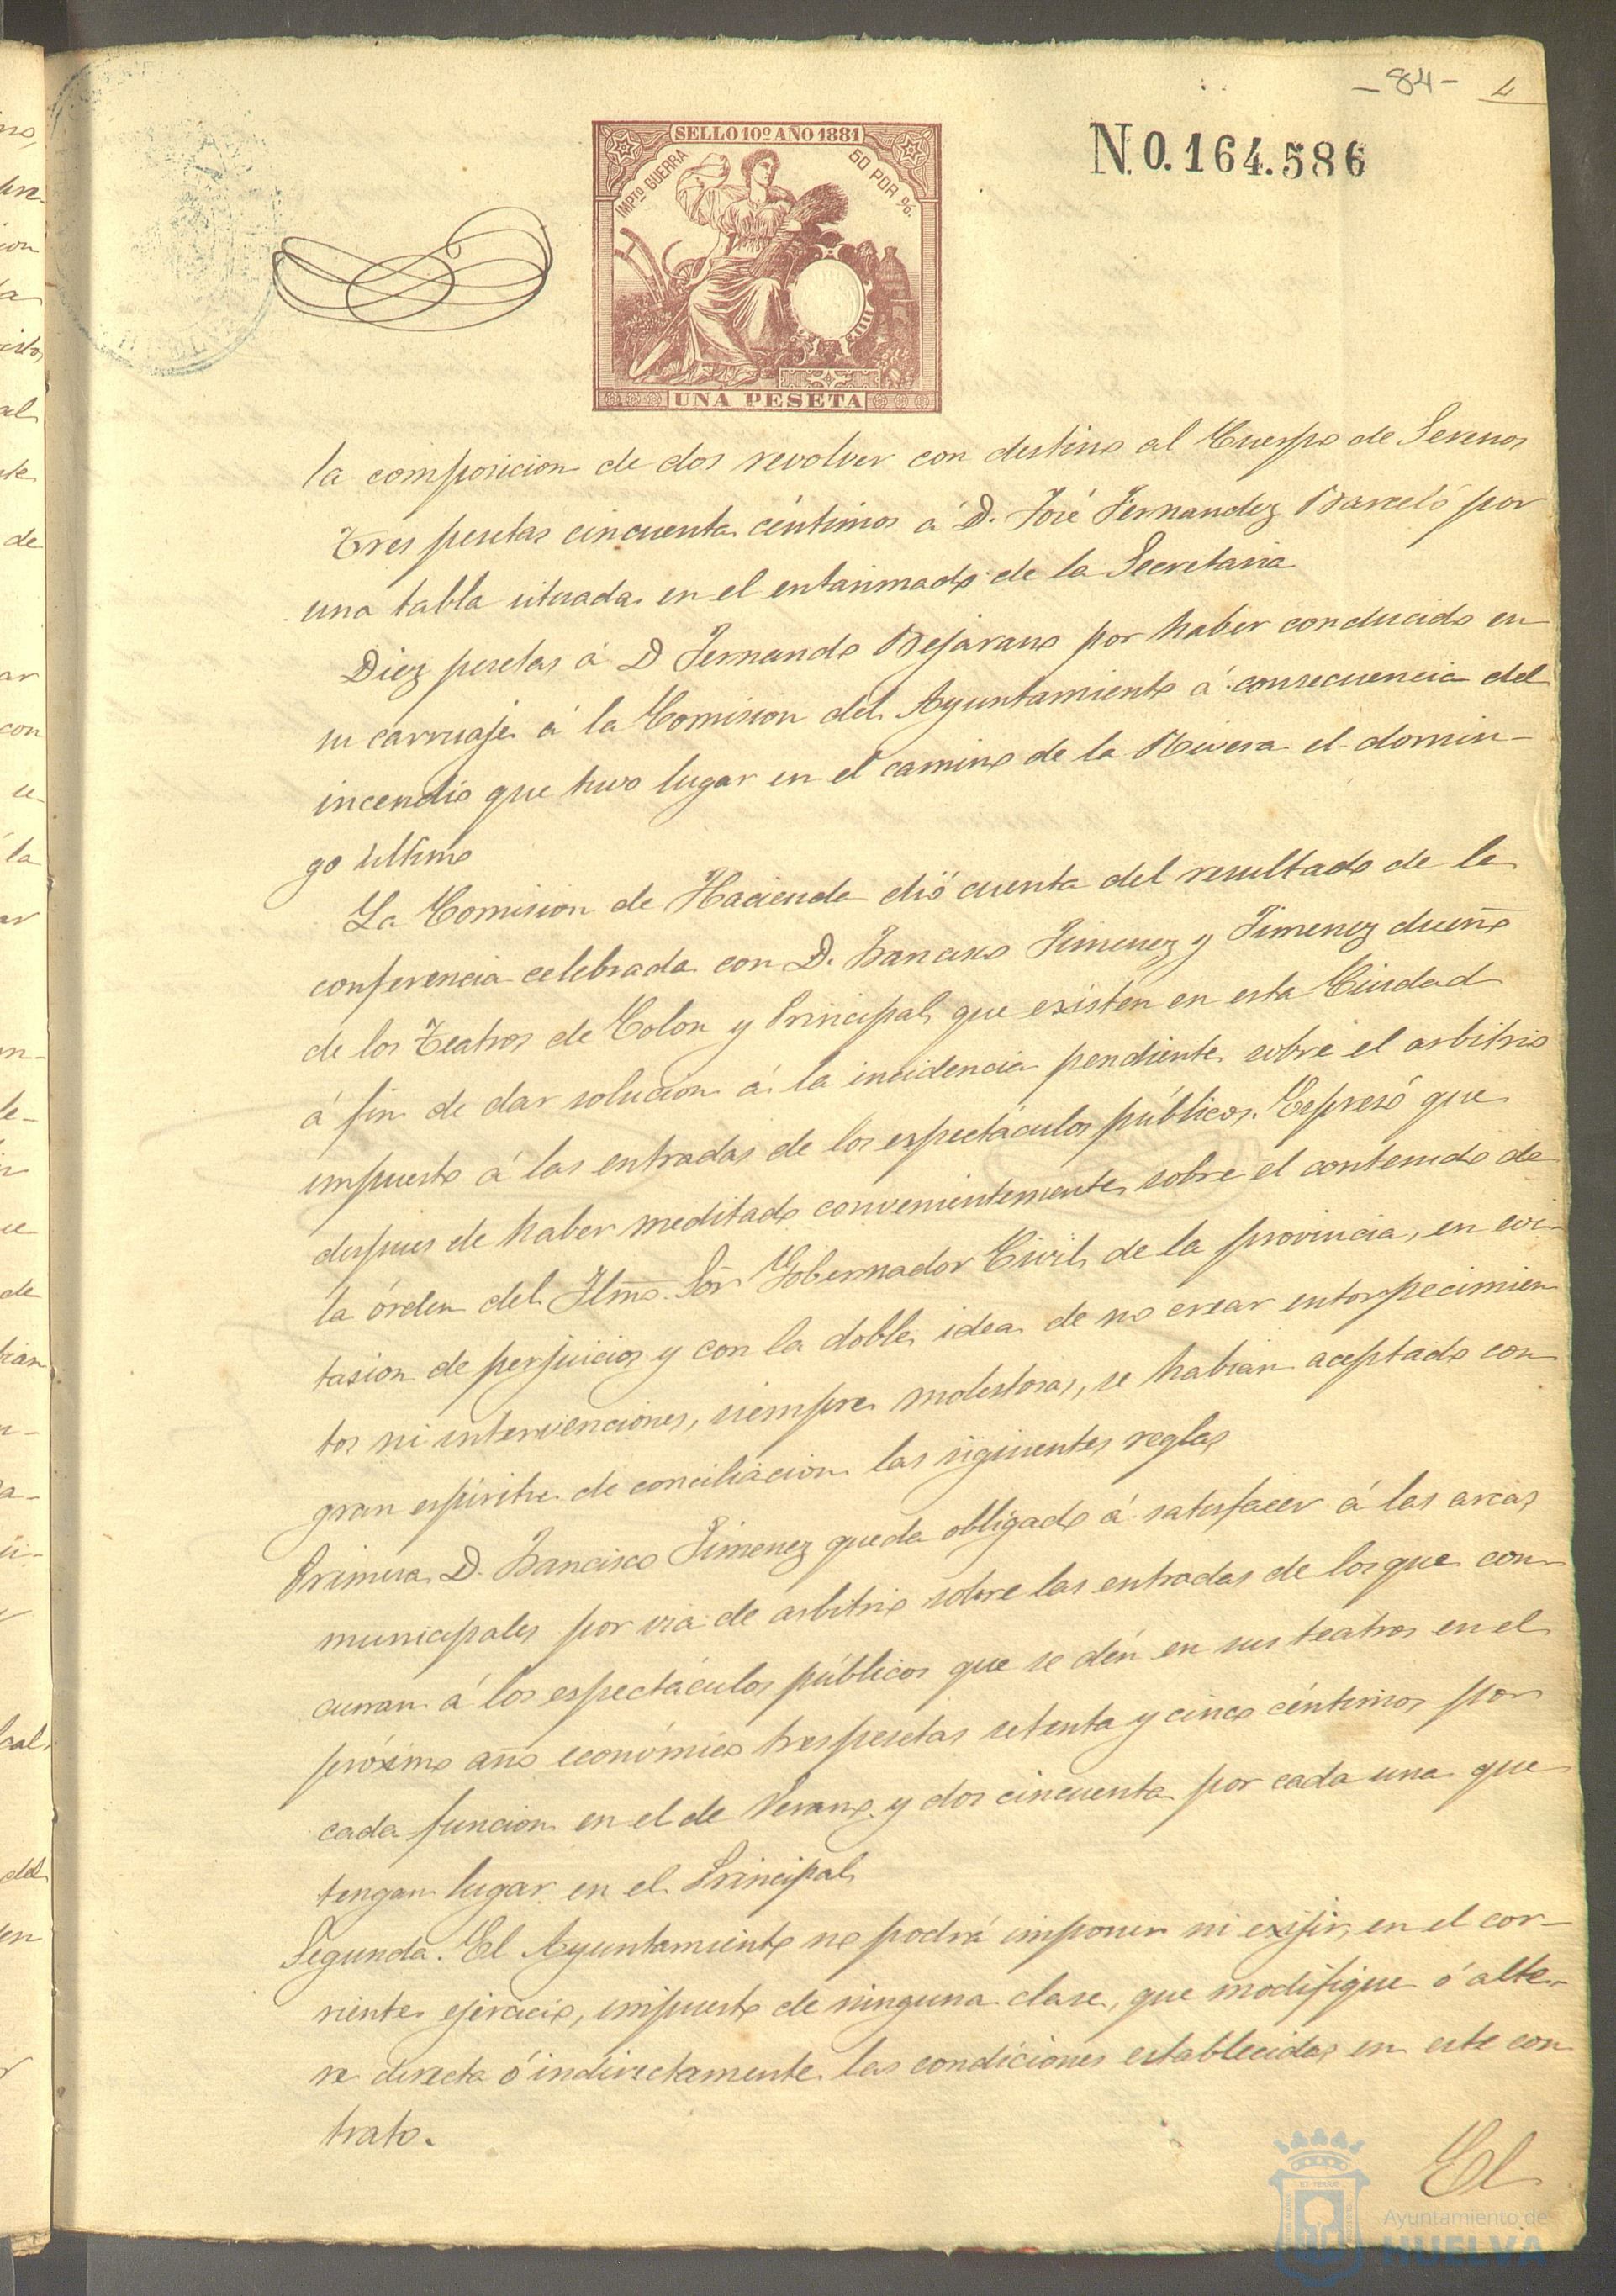 -84- 4
N.0.164.586
SELLO 10º AÑO 1881
IMPTO GUERRA 50 POR %.
UNA PESETA
la composicion de dos revolver con destino al Cuerpo de Serenos
Tres pesetas cincuenta céntimos á D. José Fernandez Barceló por
una tabla situada en el entarimado de la Secretaria
Diez pesetas á D Fernando Bejarano por haber conducido en
su carruaje á la Comision del Ayuntamiento á consecuencia del
incendio que tuvo lugar en el camino de la Rivera el domin-
go último
La Comision de Hacienda dió cuenta del resultado de la
conferencia celebrada con D. Francisco Jimenez y Jimenez dueño
de los Teatros de Colon y Principal que existen en esta Ciudad
á fin de dar solucion á la incidencia pendiente sobre el arbitrio
impuesto á las entradas de los espectáculos públicos. Espresó que
despues de haber meditado convenientemente sobre el contenido de
la órden del Ilmo. Sor Gobernador Civil de la provincia, en evi-
tasion de perjuicios y con la doble idea de no crear entorpecimien
tos ni intervenciones, siempre molestosas, se habian aceptado con
gran espíritu de conciliacion las siguientes reglas
Primera D. Francisco Jimenez queda obligado á satisfacer á las arcas
municipales por via de arbitrio sobre las entradas de los que con-
curran á los espectáculos públicos que se dén en sus teatros en el
próximo año económico tres pesetas setenta y cinco céntimos por
cada funcion en el de Verano y dos cincuenta por cada una que
tengan lugar en el Principal
Segunda. El Ayuntamiento no podrá imponer ni exijir, en el cor-
riente ejercicio, impuesto de ninguna clase, que modifique ó alte-
re directa ó indirectamente las condiciones establecidas en este con
trato.
El
Ayuntamiento de
HUELVA